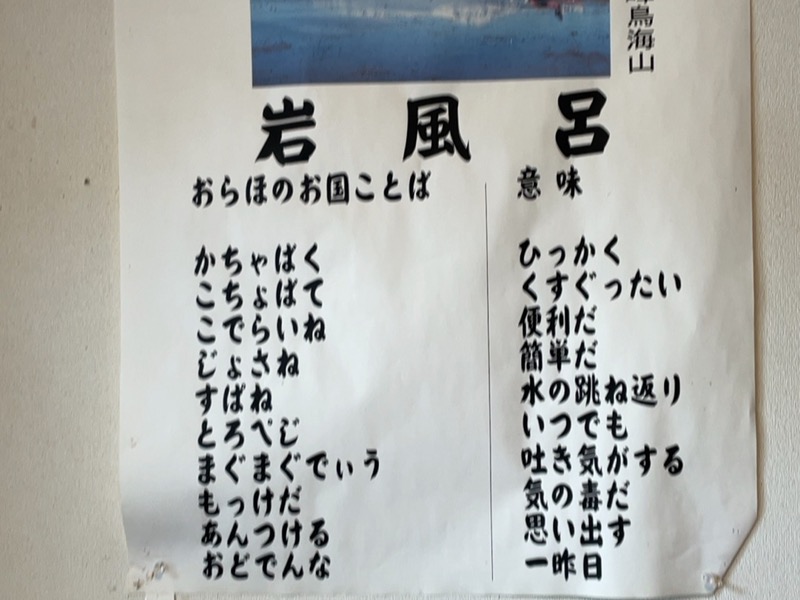 鳥海山
岩風呂
おらほのお国ことば 意味
かちゃばく ひっかく
こちょばて くすぐったい
こでらいね 便利だ
じょさね 簡単だ
すばね 水の跳ね返り
とろぺじ いつでも
まぐまぐでぃう 吐き気がする
もっけだ 気の毒だ
あんつける 思い出す
おどでんな 一昨日